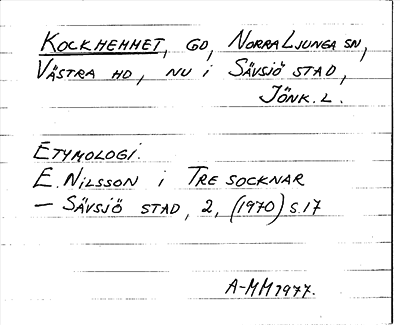 KOCKHEMMET, GD, NORRA LJUNGA SN,
VÄSTRA HD, NU I SÄVSJÖ STAD,
JÖNK. L.
ETYMOLOGI.
E. NILSSON I TRE SOCKNAR
– SÄVSJÖ STAD, 2, (1970) S.17
A-MM 1977.